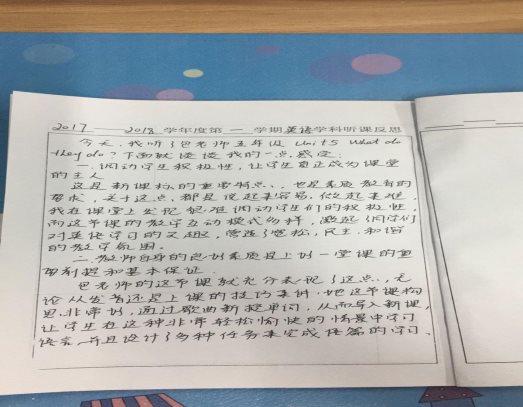 2017——2018 学年度第 一 学期英语学科听课反思
今天,我听了包老师五年级 Unit 5 What do
they do? 下面就谈谈我的一点感受:
一、调动学生积极性,让学生真正成为课堂
的主人
这是新课标的重要特点、也是素质教育的
要求,关于这点,都是说起来容易,做起来难,
我在课堂上发现 很难调动学生们的积极性
而这节课的教学互动模式多样,激起了同学们
对英语学习的兴趣,营造了轻松,民主,和谐
的教学氛围。
二、教师自身的良好素质是上好一堂课的重
要前提和基本保证.
包老师的这节课就充分表现了这点、无
论从发音还是上课的技巧来讲,她这节课构
思非常好,通过歌曲新授单词,从而导入新课,
让学生在这种非常轻松愉快的情景中学习
语言,并且设计了多种任务来完成语篇的学习、